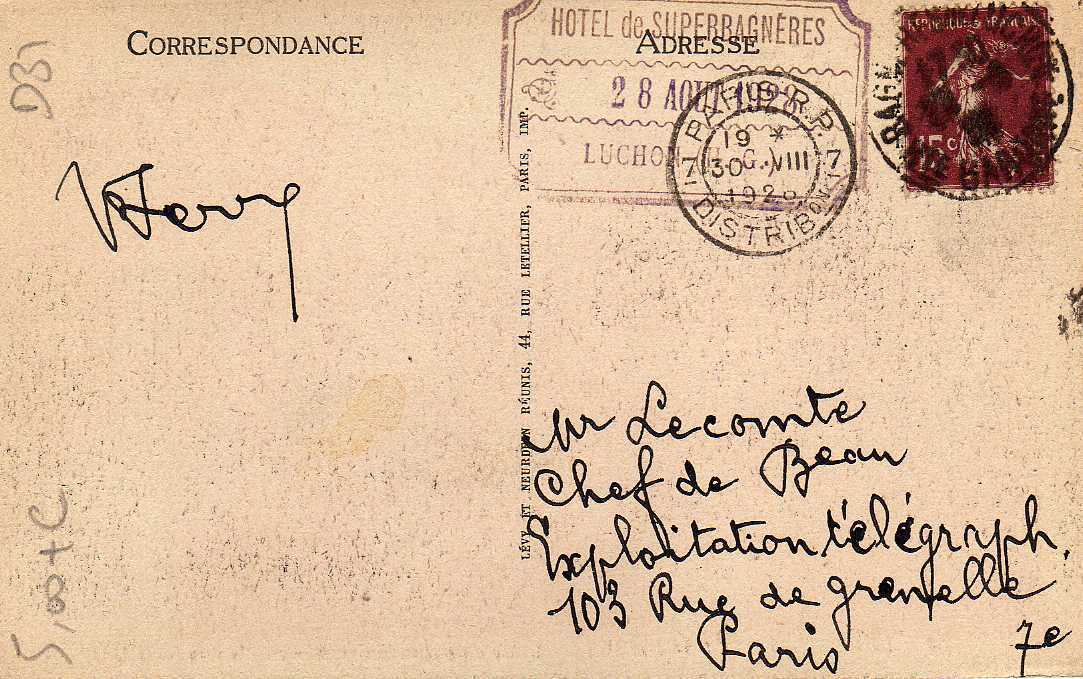 CORRESPONDANCE
ADRESSE
HOTEL de SUPERBAGNÈRES
28 AOUT 1928
LUCHON H. G.
PARIS R.P.
19 *
7 30 VIII 7
1928
DISTRIBON
RÉPUBLIQUE FRANÇAISE
15c
LÉVY ET NEURDEIN RÉUNIS, 44, RUE LETELLIER, PARIS, IMP.
Mr Lecomte
Chef de Beau
Exploitation télégraph.
103 Rue de grenelle
Paris 7e
5,00+C